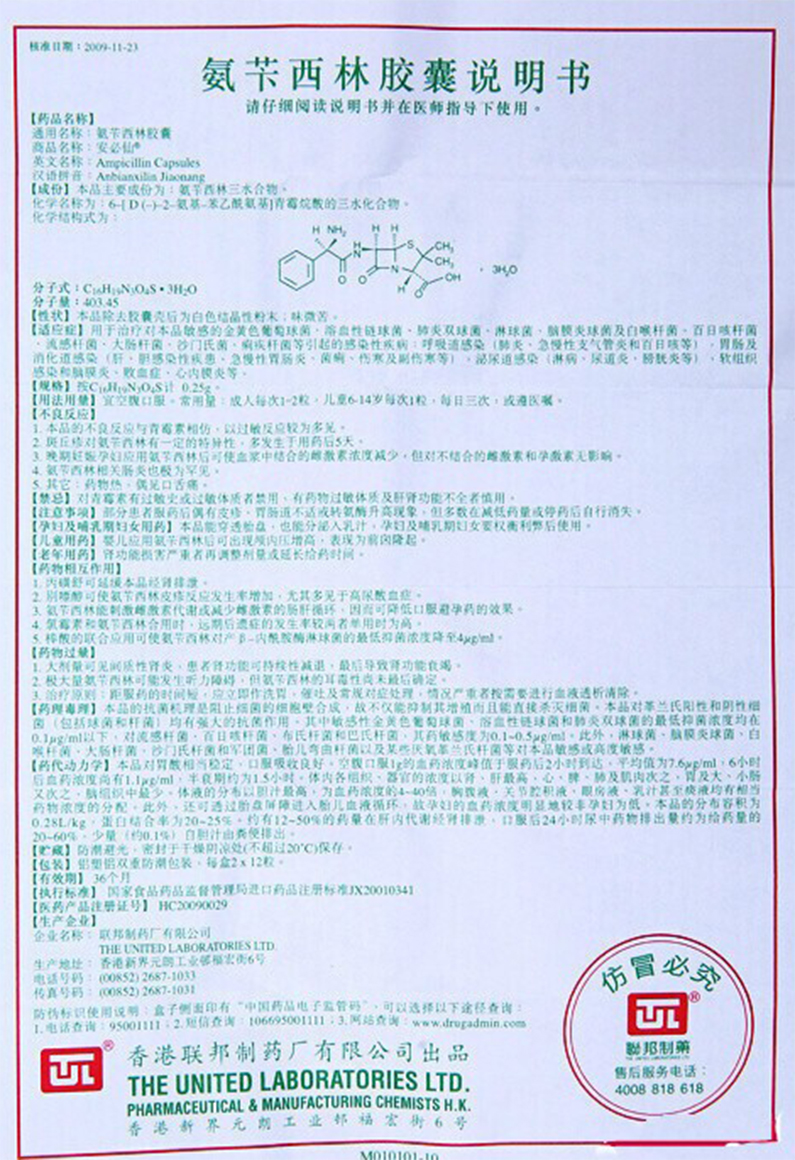 核准日期：2009-11-23
氨苄西林胶囊说明书
请仔细阅读说明书并在医师指导下使用。
【药品名称】
通用名称：氨苄西林胶囊
商品名称：安必仙®
英文名称：Ampicillin Capsules
汉语拼音：Anbianxilin Jiaonang
【成份】本品主要成份为：氨苄西林三水合物。
化学名称为：6-[ D (-)-2-氨基-苯乙酰氨基]青霉烷酸的三水化合物。
化学结构式为：
H NH₂ H H S CH₃ CH₃ N H O O N H O OH · 3H₂O
分子式：C₁₆H₁₉N₃O₄S • 3H₂O
分子量：403.45
【性状】本品除去胶囊壳后为白色结晶性粉末；味微苦。
【适应症】用于治疗对本品敏感的金黄色葡萄球菌、溶血性链球菌、肺炎双球菌、淋球菌、脑膜炎球菌及白喉杆菌、百日咳杆菌
、流感杆菌、大肠杆菌、沙门氏菌、痢疾杆菌等引起的感染性疾病：呼吸道感染（肺炎、急慢性支气管炎和百日咳等），胃肠及
消化道感染（肝、胆感染性疾患、急慢性胃肠炎、菌痢、伤寒及副伤寒等），泌尿道感染（淋病、尿道炎、膀胱炎等）、软组织
感染和脑膜炎、败血症、心内膜炎等。
【规格】按C₁₆H₁₉N₃O₄S计 0.25g。
【用法用量】宜空腹口服。常用量：成人每次1-2粒，儿童6-14岁每次1粒，每日三次；或遵医嘱。
【不良反应】
1. 本品的不良反应与青霉素相仿，以过敏反应较为多见。
2. 斑丘疹对氨苄西林有一定的特异性，多发生于用药后5天。
3. 晚期妊娠孕妇应用氨苄西林后可使血浆中结合的雌激素浓度减少，但对不结合的雌激素和孕激素无影响。
4. 氨苄西林相关肠炎也极为罕见。
5. 其它：药物热，偶见口舌痛。
【禁忌】对青霉素有过敏史或过敏体质者禁用、有药物过敏体质及肝肾功能不全者慎用。
【注意事项】部分患者服药后偶有皮疹，胃肠道不适或转氨酶升高现象，但多数在减低药量或停药后自行消失。
【孕妇及哺乳期妇女用药】本品能穿透胎盘，也能分泌入乳汁，孕妇及哺乳期妇女要权衡利弊后使用。
【儿童用药】婴儿应用氨苄西林后可出现颅内压增高，表现为前囟隆起。
【老年用药】肾功能损害严重者再调整剂量或延长给药时间。
【药物相互作用】
1. 丙磺舒可延缓本品经肾排泄。
2. 别嘌醇可使氨苄西林皮疹反应发生率增加，尤其多见于高尿酸血症。
3. 氨苄西林能刺激雌激素代谢或减少雌激素的肠肝循环，因而可降低口服避孕药的效果。
4. 氯霉素和氨苄西林合用时，远期后遗症的发生率较两者单用时为高。
5. 棒酸的联合应用可使氨苄西林对产β-内酰胺酶淋球菌的最低抑菌浓度降至4μg/ml。
【药物过量】
1. 大剂量可见间质性肾炎，患者肾功能可持续性减退，最后导致肾功能衰竭。
2. 极大量氨苄西林可能发生听力障碍，但氨苄西林的耳毒性尚未最后确定。
3. 治疗原则：距服药的时间短，应立即作洗胃、催吐及常规对症处理，情况严重者按需要进行血液透析清除。
【药理毒理】本品的抗菌机理是阻止细菌的细胞壁合成，故不仅能抑制其增殖而且能直接杀灭细菌。本品对革兰氏阳性和阴性细
菌（包括球菌和杆菌）均有强大的抗菌作用。其中敏感性金黄色葡萄球菌、溶血性链球菌和肺炎双球菌的最低抑菌浓度均在
0.1μg/ml以下，对流感杆菌、百日咳杆菌、布氏杆菌和巴氏杆菌，其药敏感度为0.1~0.5μg/ml。此外，淋球菌、脑膜炎球菌、白
喉杆菌、大肠杆菌、沙门氏杆菌和军团菌、胎儿弯曲杆菌以及某些厌氧革兰氏杆菌等对本品敏感或高度敏感。
【药代动力学】本品对胃酸相当稳定，口服吸收良好。空腹口服1g的血药浓度峰值于服药后2小时到达，平均值为7.6μg/ml，6小时
后血药浓度尚有1.1μg/ml，半衰期约为1.5小时。体内各组织、器官的浓度以肾、肝最高，心、脾、肺及肌肉次之，胃及大、小肠
又次之，脑组织中最少。体液的分布以胆汁最高，为血药浓度的4~40倍，胸腹液、关节腔积液、眼房液、乳汁甚至痰液均有相当
药物浓度的分配。此外，还可透过胎盘屏障进入胎儿血液循环，故孕妇的血药浓度明显地较非孕妇为低。本品的分布容积为
0.28L/kg，蛋白结合率为20~25%。约有12~50%的药量在肝内代谢经肾排泄，口服后24小时尿中药物排出量约为给药量的
20~60%，少量（约0.1%）自胆汁由粪便排出。
【贮藏】防潮避光，密封于干燥阴凉处(不超过20℃)保存。
【包装】铝塑铝双重防潮包装，每盒2 x 12粒。
【有效期】36个月
【执行标准】 国家食品药品监督管理局进口药品注册标准JX20010341
【医药产品注册证号】 HC20090029
【生产企业】
企业名称：联邦制药厂有限公司
THE UNITED LABORATORIES LTD.
生产地址：香港新界元朗工业邨福宏街6号
电话号码：(00852) 2687-1033
传真号码：(00852) 2687-1031
防伪标识使用说明：盒子侧面印有“中国药品电子监管码”，可以选择以下途径查询：
1.电话查询：95001111；2.短信查询：106695001111；3.网站查询：www.drugadmin.com
香港联邦制药厂有限公司出品
THE UNITED LABORATORIES LTD.
PHARMACEUTICAL & MANUFACTURING CHEMISTS H.K.
香港新界元朗工业邨福宏街6号
仿冒必究
聯邦制藥
售后服务电话：
4008 818 618
M010101-10